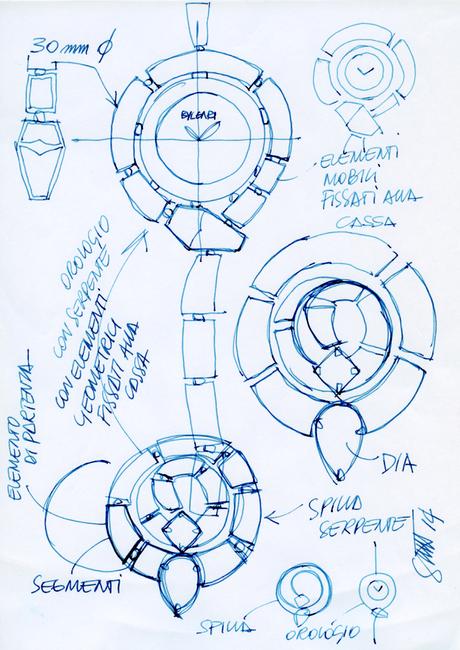 30 mm ϕ
BVLGARI
ELEMENTI
MOBILI
FISSATI ALLA
CASSA
OROLOGIO
CON SERPENTE
CON ELEMENTI
GEOMETRICI
FISSATI ALLA
CASSA
ELEMENTO
DI PARTENZA
DIA
SPILLA
SERPENTE
14
SEGMENTI
SPILLA
OROLOGIO